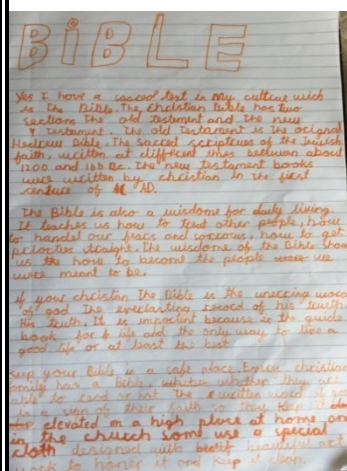 BiBLE
Yes I have a sacred text in my culture wich
is the Bible. The christian Bible has two
sections the old testiment and the new
testament. The old testament is the orignal
Hedreus Bible. The sacred scriptures of the Jewish
faith, written at different times between about
1200 and 165 Bc. The new testament books
were written by christian in the first
century of AD.
The Bible is also a wisdome for daily living.
It teaches us how to treat other people, how
to handel our fears and worrows, how to get
priorties straight. The wisdome of the Bible show
us the how to become the people we
were meant to be.
if your christan the Bible is the unerring word
of god. The everlasting record of his truth,
His truth. It is important because is the guide
book for life and the only way to live a
good life or at least the best
your Bible in a safe place. Every christian
family has a Bible, whether they are
able to read or not. The written word
is a sign of their faith so they keep it
elevated on a high place at home or
in the church some use a special
cloth designed with beautiful art
work to honer it and keep it clean.